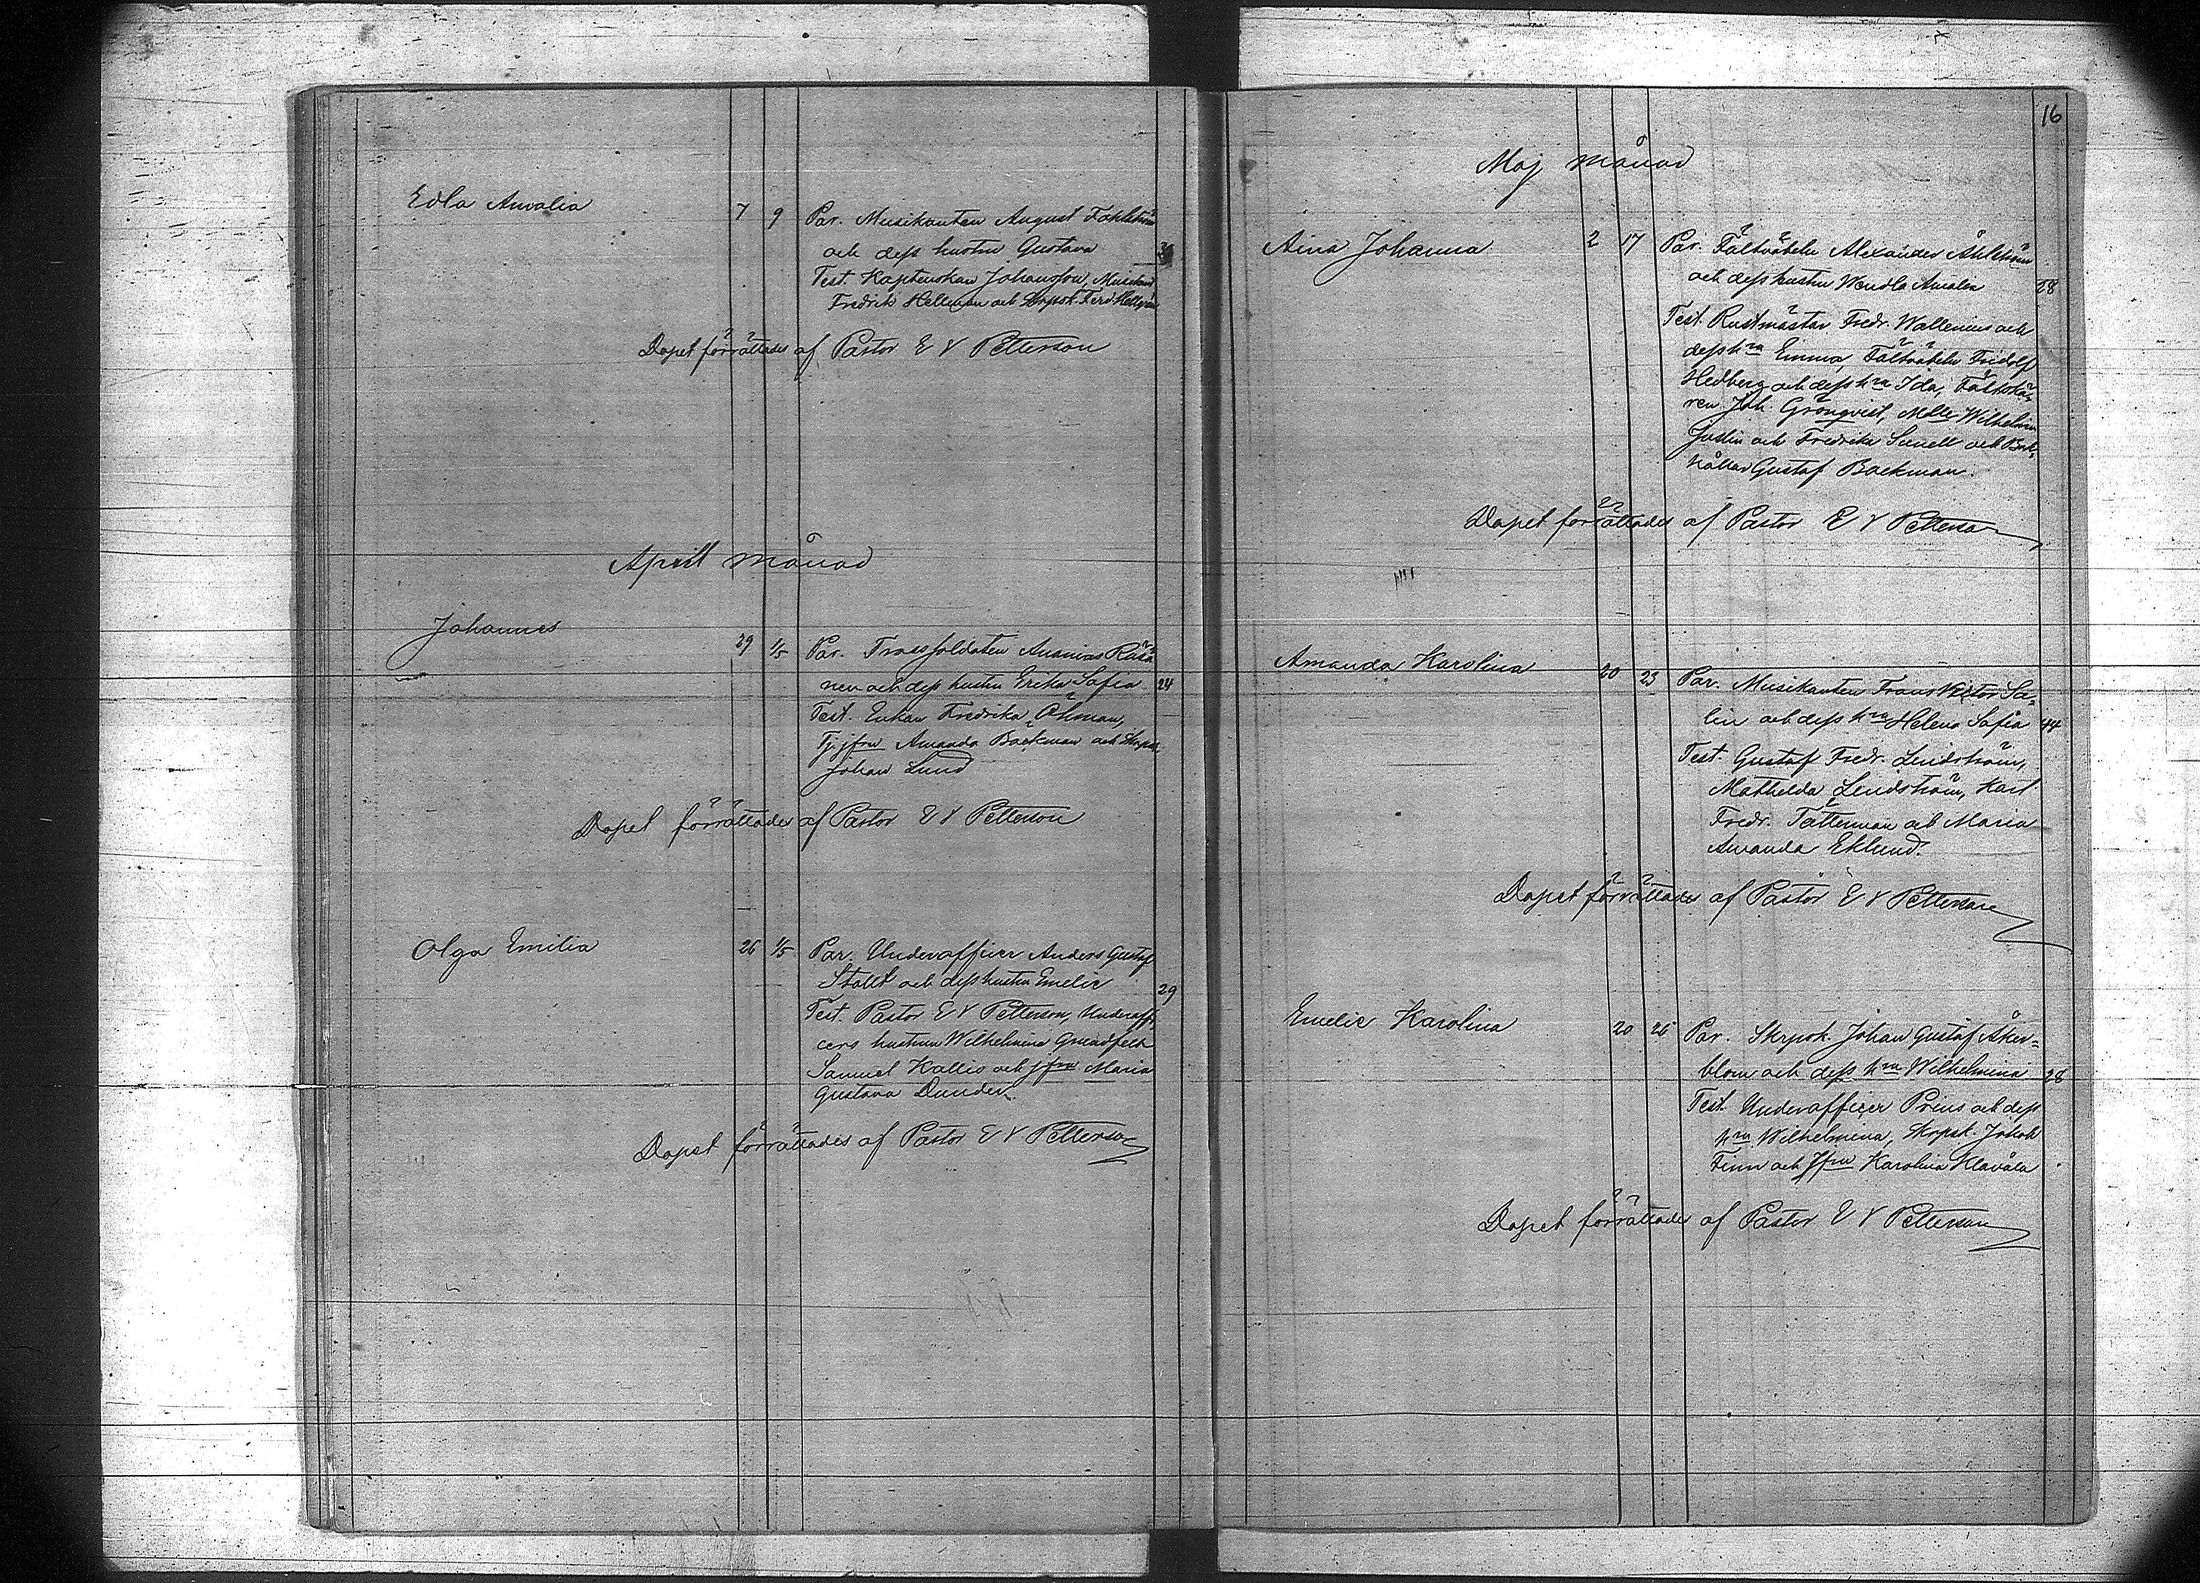 Edla Amalia 7 9 Par. Musikanten August Fahlström
och dess hustru Gustava
Test. Kaptenskan Johansson, Musikant
Fredrik Hellman och Skrpsk. Ferd.
Dopet förrättades af Pastor E V Petterson
April månad
Johannes 29 1/5 Par. Trossoldaten Ananias Räsä
nen och dess hustru Erika Sofia 24
Test. Enkan Fredrika Öhman,
Tj. jfru Amanda Backman och Skrpsk.
Johan Lund
Dopet förrättades af Pastor E V Petterson
Olga Emilia 26 1/5 Par. Underofficer Anders Gustaf
Stolt och dess hustru Emelie 29
Test. Pastor E V Petterson, Underoffi
cers hustrun Wilhelmina Grundfelt
Samuel Kallio och jfru Maria
Gustava Dunder
Dopet förrättades af Pastor E V Petterson
16
Maj månad
Aina Johanna 2 17 Par. Fältväbeln Alexander Åhlström
och dess hustru Wendla Amalia 28
Test. Rustmästar Fredr. Wallenius och
dess hru Emma, Fältväbeln Fridolf
Hedberg och dess hru Ida, Fältskä
ren Joh. Grönqvist, Mlle Wilhelmina
Justin och Fredrika Sunell och Bok,
hållar Gustaf Backman.
Dopet förrättades af Pastor E V Petterson
Amanda Karolina 20 23 Par. Musikanten Frans Viktor Sa=
lin och dess hru Helena Sofia 44
Test. Gustaf Fredr. Lindström,
Mathelda Lindström, Karl
Fredr. Tätterman och Maria
Amanda Eklund.
Dopet förrättades af Pastor E V Petterson
Emelie Karolina 20 25 Par. Skrpsk. Johan Gustaf Åker=
blom och dess hru Wilhelmina 28
Test. Underofficer Prius och dess
hru Wilhelmina, Skrpsk. Jakob
Finn och Jfru Karolina Klåvala
Dopet förrättades af Pastor E V Petterson